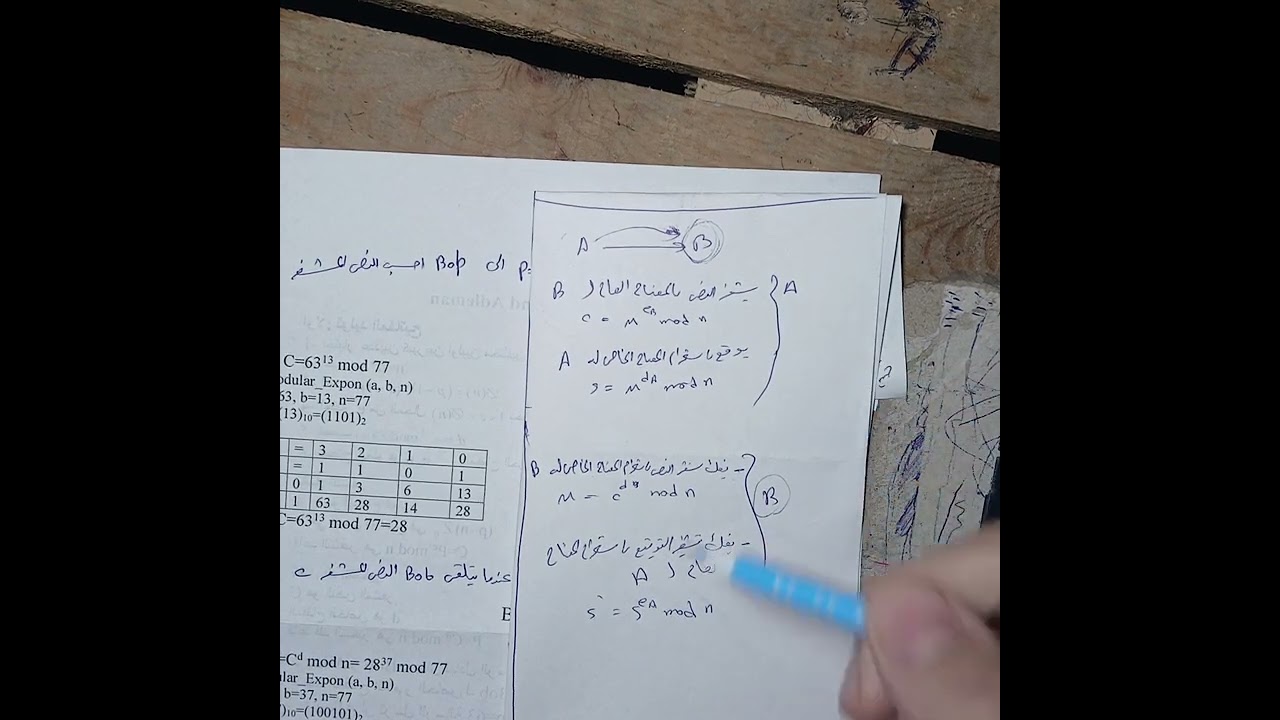 A B
يشفر النص بالمفتاح العام ل B
A
C = M^eB mod n
يوقع باستخدام المفتاح الخاص له A
S = M^dA mod n
- يفك شفر النص باستخدام المفتاح الخاص له B
M = C^dB mod n
B
- يفك تشفير التوقيع باستخدام المفتاح
العام ل A
S` = S^eA mod n
الى Bob احسب النص المشفر
C=63^13 mod 77
odular_Expon (a, b, n)
63, b=13, n=77
(13)10=(1101)2
= 3 2 1 0
= 1 1 0 1
0 1 3 6 13
1 63 28 14 28
C=63^13 mod 77=28
عندما يتلقى Bob النص المشفر C
=C^d mod n= 28^37 mod 77
ular_Expon (a, b, n)
b=37, n=77
)10=(100101)2